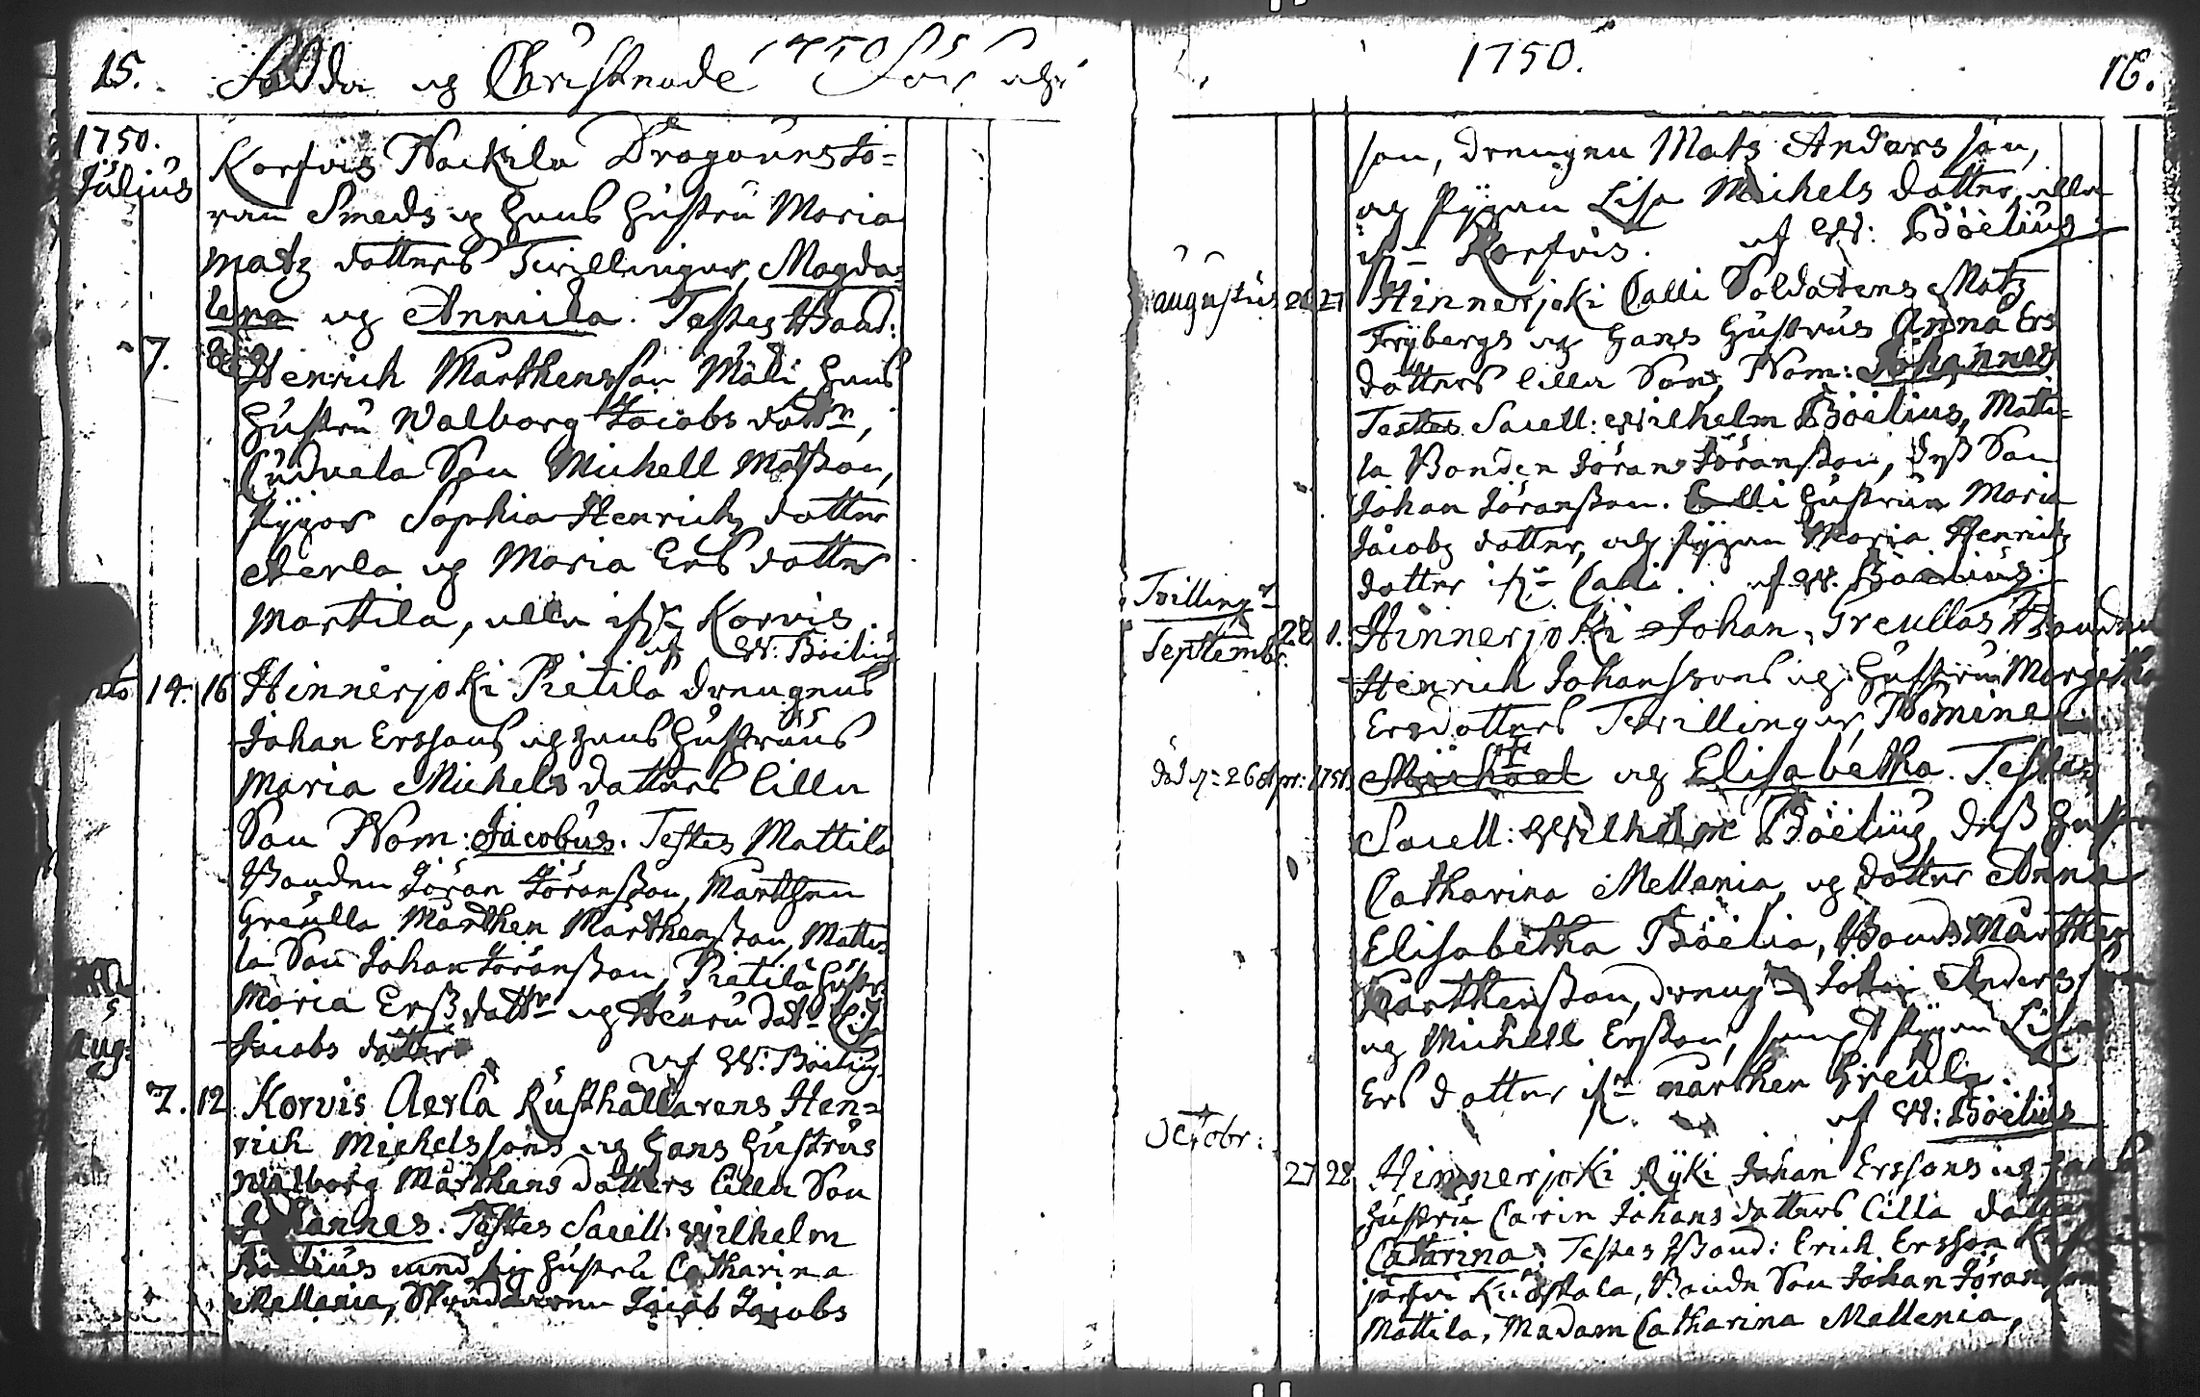 15. Födde og Christnade 1750
1750.
Julius
Korfvis Nackila Dragounsto=
ren Smeds og hans hustru Maria
Matz dotters Twillingar, Magda=
lena og Annicka. Testes Bond:
7. 8 Henrich Marthensson Mäki, hans
hustru Walborg Jacobs dottr,
Cudnela Son Michell Matsson,
Pygor Sophia Henrichs dotter
Aerla og Maria Ers dotter
Martila, alla ifrn Korvis.
af W: Böelius
dito 14. 16 Hinnerjoki Pietilä drengens
Johan Erssons og hans hustrus
Maria Michels dotters lilla
Son Nom: Jacobus. Testes Mattila
Bonden Jöran Jöransson, Marthen
Greulla Marthen Marthensson, Matti=
la Son Johan Jöransson, Pietilä hustr
Maria Erss dottr og Henru dotr
Jacobs dotter
af W: Böelius
Aug:
7. 12 Korvis Aerla Rusthållarens Hen=
rich Michelssons og hans hustrus
Walborg Marthens dotters lilla Son
Johannes. Testes Sacell: Wilhelm
Böelius med sin hustru Catharina
Mellenia, Jacob Jacobs
1750. 16.
son, drengen Mats Andersson,
og Pygan Lisa Michels dotter, alla
ifrn Korfvis. af W: Böelius
Augustus 26 27 Hinnerjoki Calli Soldatens Matz
Frybergs og hans hustrus Anna Ers
dotters lilla Son, Nom: Johannes
Testes Sacell: Wilhelm Böelius, Matti=
la Bonden Jöran Jöransson, dess Son
Johan Jöransson. Calli hustrun Maria
Jacobs dotter, og Pygan Maria Henrichs
dotter ifrn Calli. af W. Böelius.
Tvillingr
Septembr. 28 1. Hinnerjoki Johan Greullas Bonden
Henrich Johanssons og hustrun Margetha
Ersdotters Twillingar, Nomine
död d: 26 Apr: 1751. Michael og Elisabetha. Testes
Sacell: Wilhelm Böelius, dess hust
Catharina Mellenia, og dotter Anna
Elisabetha Böelia, Bond Marthen
Marthensson, dreng Johan Anders
og Michell Ersson, sampt Pygan Lisa
Ers dotter ifrn Marthen Greula.
af W: Böelius
Octobr:
27 28 Hinnerjoki Ryki Johan Erssons og hans
hustru Carin Johans dotters lilla dotter
Catarina. Testes Bond: Erich Ersson
järfvi Kuustala, Bonde Son Johan Jöransson
Mattila, Madam Catharina Mellenia,